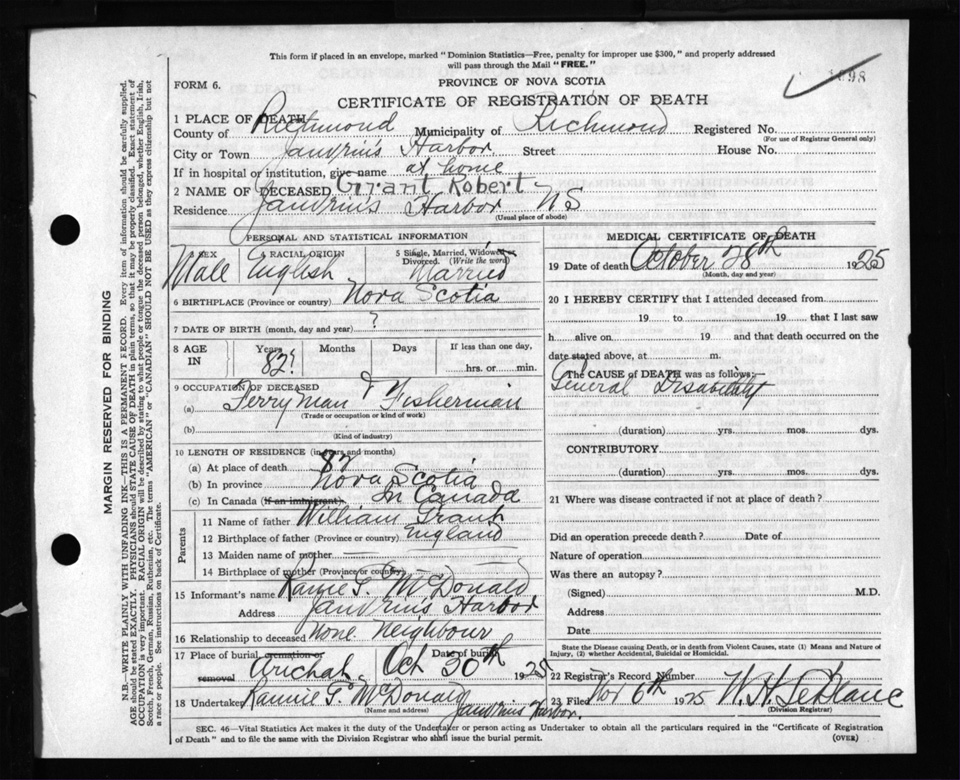 This form if placed in an envelope, marked "Dominion Statistics—Free, penalty for improper use $300," and properly addressed
will pass through the Mail "FREE."
PROVINCE OF NOVA SCOTIA
FORM 6.
CERTIFICATE OF REGISTRATION OF DEATH
1 PLACE OF DEATH
County of Richmond Municipality of Richmond Registered No.
(For use of Registrar General only)
City or Town Janvrins Harbor Street House No.
If in hospital or institution, give name at home
2 NAME OF DECEASED Grant Robert
Residence Janvrins Harbor NS
(Usual place of abode)
PERSONAL AND STATISTICAL INFORMATION
SEX 4 RACIAL ORIGIN 5 Single, Married, Widowed or Divorced. (Write the word)
Male English Married
6 BIRTHPLACE (Province or country) Nova Scotia
7 DATE OF BIRTH (month, day and year) ?
8 AGE IN Years Months Days If less than one day,
82? hrs. or min.
9 OCCUPATION OF DECEASED
(a) Ferryman & Fisherman
(Trade or occupation or kind of work)
(b)
(Kind of industry)
10 LENGTH OF RESIDENCE (in years and months)
(a) At place of death 82
(b) In province Nova Scotia
(c) In Canada (if an immigrant) In Canada
Parents
11 Name of father William Grant
12 Birthplace of father (Province or country) England
13 Maiden name of mother
14 Birthplace of mother (Province or country)
15 Informant's name Rannie G. McDonald
Address Janvrins Harbor
16 Relationship to deceased None Neighbour
17 Place of burial cremation or removal Date of burial
Arichat Oct 30th 1925
18 Undertaker Rannie G. McDonald
(Name and address) Janvrins Harbor.
MEDICAL CERTIFICATE OF DEATH
19 Date of death October 28th 1925
(Month, day and year)
20 I HEREBY CERTIFY that I attended deceased from
19 to 19 that I last saw
h alive on 19 and that death occurred on the
date stated above, at m.
The CAUSE OF DEATH was as follows:
General Disability
(duration) yrs. mos. dys.
CONTRIBUTORY
(duration) yrs. mos. dys.
21 Where was disease contracted if not at place of death?
Did an operation precede death? Date of
Nature of operation
Was there an autopsy?
(Signed) M.D.
Address
Date
State the Disease causing Death, or in death from Violent Causes, state (1) Means and Nature of
Injury, (2) whether Accidental, Suicidal or Homicidal.
22 Registrar's Record Number
23 Filed Nov 6th 1925 W. H. LeBlanc
(Division Registrar)
SEC. 46—Vital Statistics Act makes it the duty of the Undertaker or person acting as Undertaker to obtain all the particulars required in the "Certificate of Registration
of Death" and to file the same with the Division Registrar who shall issue the burial permit. (OVER)
MARGIN RESERVED FOR BINDING
N.B.—WRITE PLAINLY WITH UNFADING INK—THIS IS A PERMANENT RECORD. Every item of information should be carefully supplied.
AGE should be stated EXACTLY. PHYSICIANS should STATE CAUSE OF DEATH in plain terms, so that it may be properly classified. Exact statement of
OCCUPATION is very important. RACIAL ORIGIN will be described by stating to what people or tongue the deceased person belonged, whether English, Irish,
Scotch, French, German, Russian, Ruthenian, etc. The terms "AMERICAN" or "CANADIAN" SHOULD NOT BE USED as they express citizenship but not
a race or people. See instructions on back of Certificate.